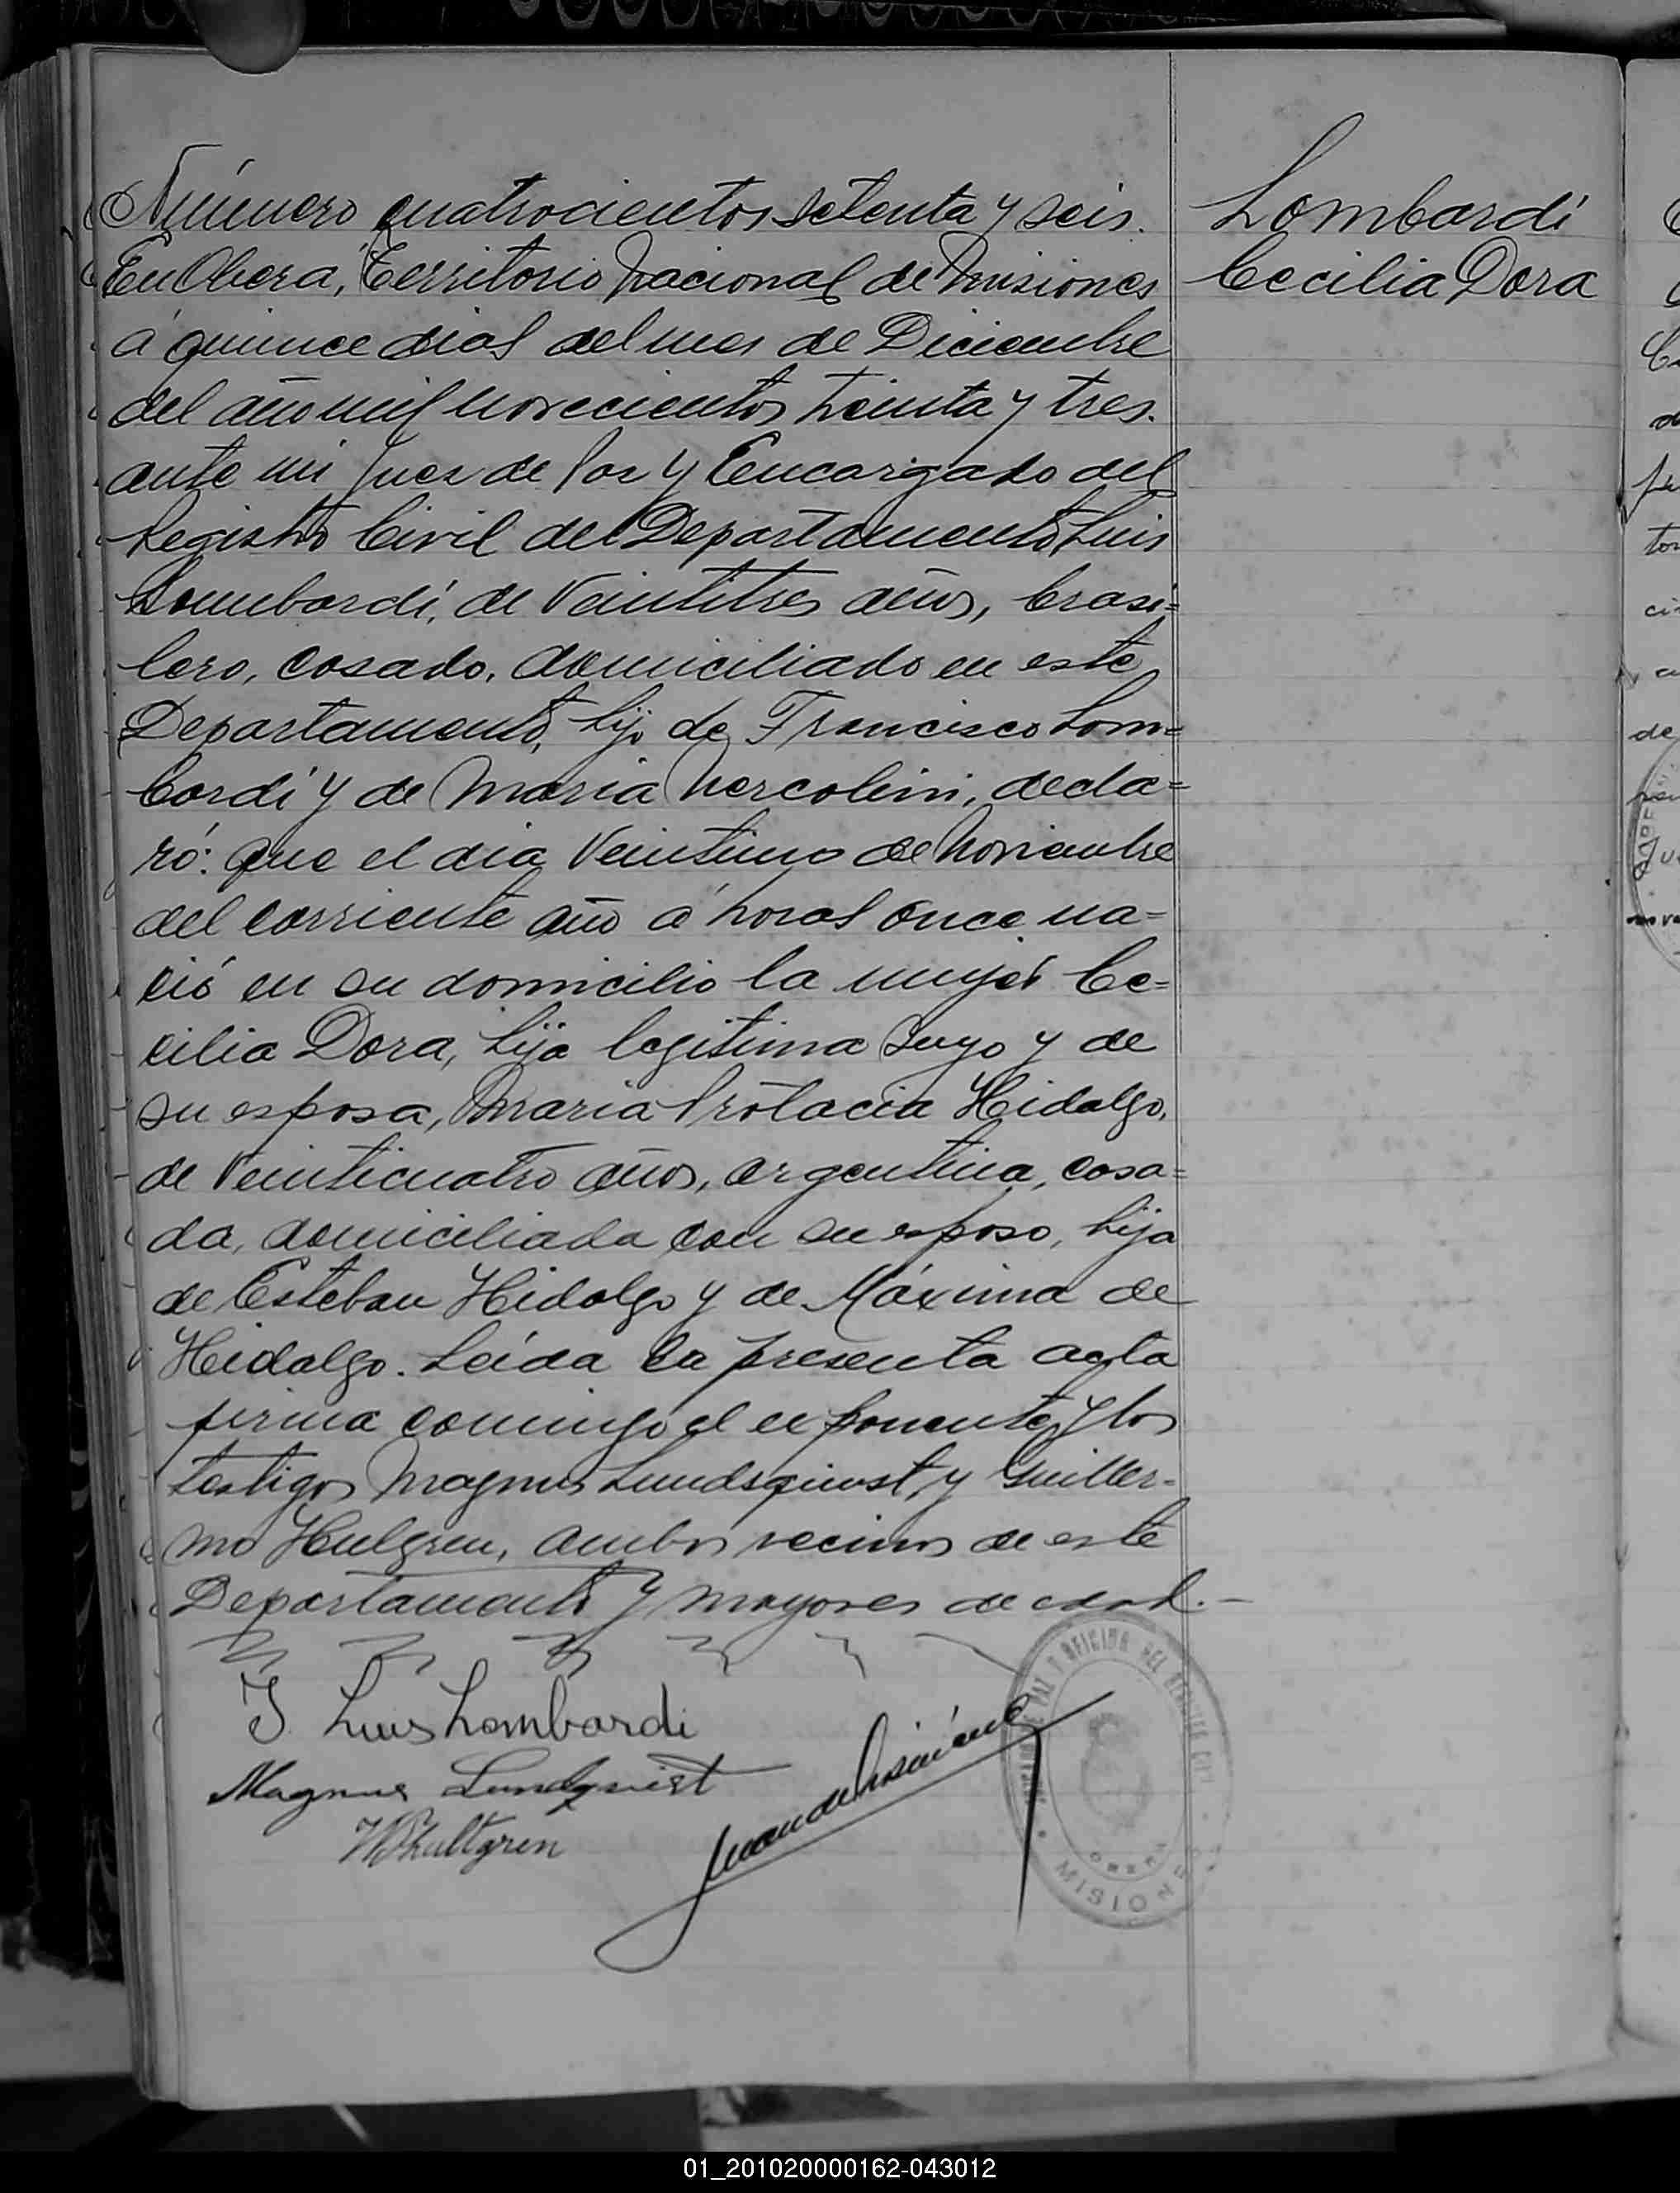 Número cuatrocientos setenta y seis.
En Obera, Territorio Nacional de Misiones
á quince dias del mes de Diciembre
del año mil novecientos treinta y tres.
ante mi Juez de Paz y Encargado del
Registro Civil del Departamento, Luis
Lombardi, de veintitres años, brasi=
lero, casado, domiciliado en este
Departamento, hijo de Francisco Lom=
bardi y de Maria Nercolini, decla=
ró: que el dia veintiuno de Noviembre
del corriente año á horas once na=
ció en su domicilio la mujer Ce=
cilia Dora, hija legitima suya y de
su esposa, Maria Protacia Hidalgo,
de veinticuatro años, argentina, casa=
da, domiciliada con su esposo, hija
de Esteban Hidalgo y de Máxima de
Hidalgo. Leída la presenta acta
firma comigo el exponente y los
testigos Magnus Lundsquivst, y Guiller-
mo Hulgren, ambos vecinos de este
Departamento y mayores de edad.-
Lombardi
Cecilia Dora
J. Luis Lombardi
Magnus Lundqvist
W Hultgren
PAZ Y OFICINA DEL REGISTRO CIVIL
OBERA
MISIONES
01_201020000162-043012